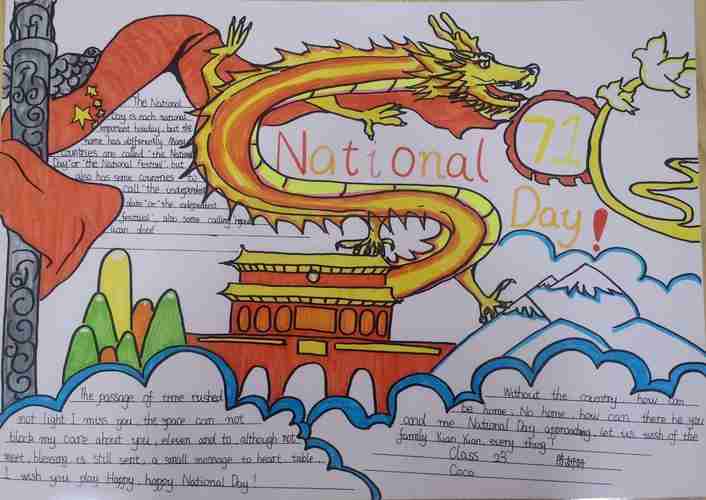 The National
Day is each national
important holiday, but the
name has differently. Many
countries are called "the National
Day" or "the National festival", but
also has some countries to
call "the independent
date" or "the independent
festival", also some calling
ican done
National
71
Day!
The passage of time rushed
not light I miss you, the space can not
block my care about you, eleven and to although not
meet, blessing is still sent, a small message to heart, table,
I wish you play Happy, happy National Day!
Without the country, how can
be home; No home, how can there be you
and me. National Day approaching, let us wish of the
family Xian Xian, every thing!
Class 23
Coco